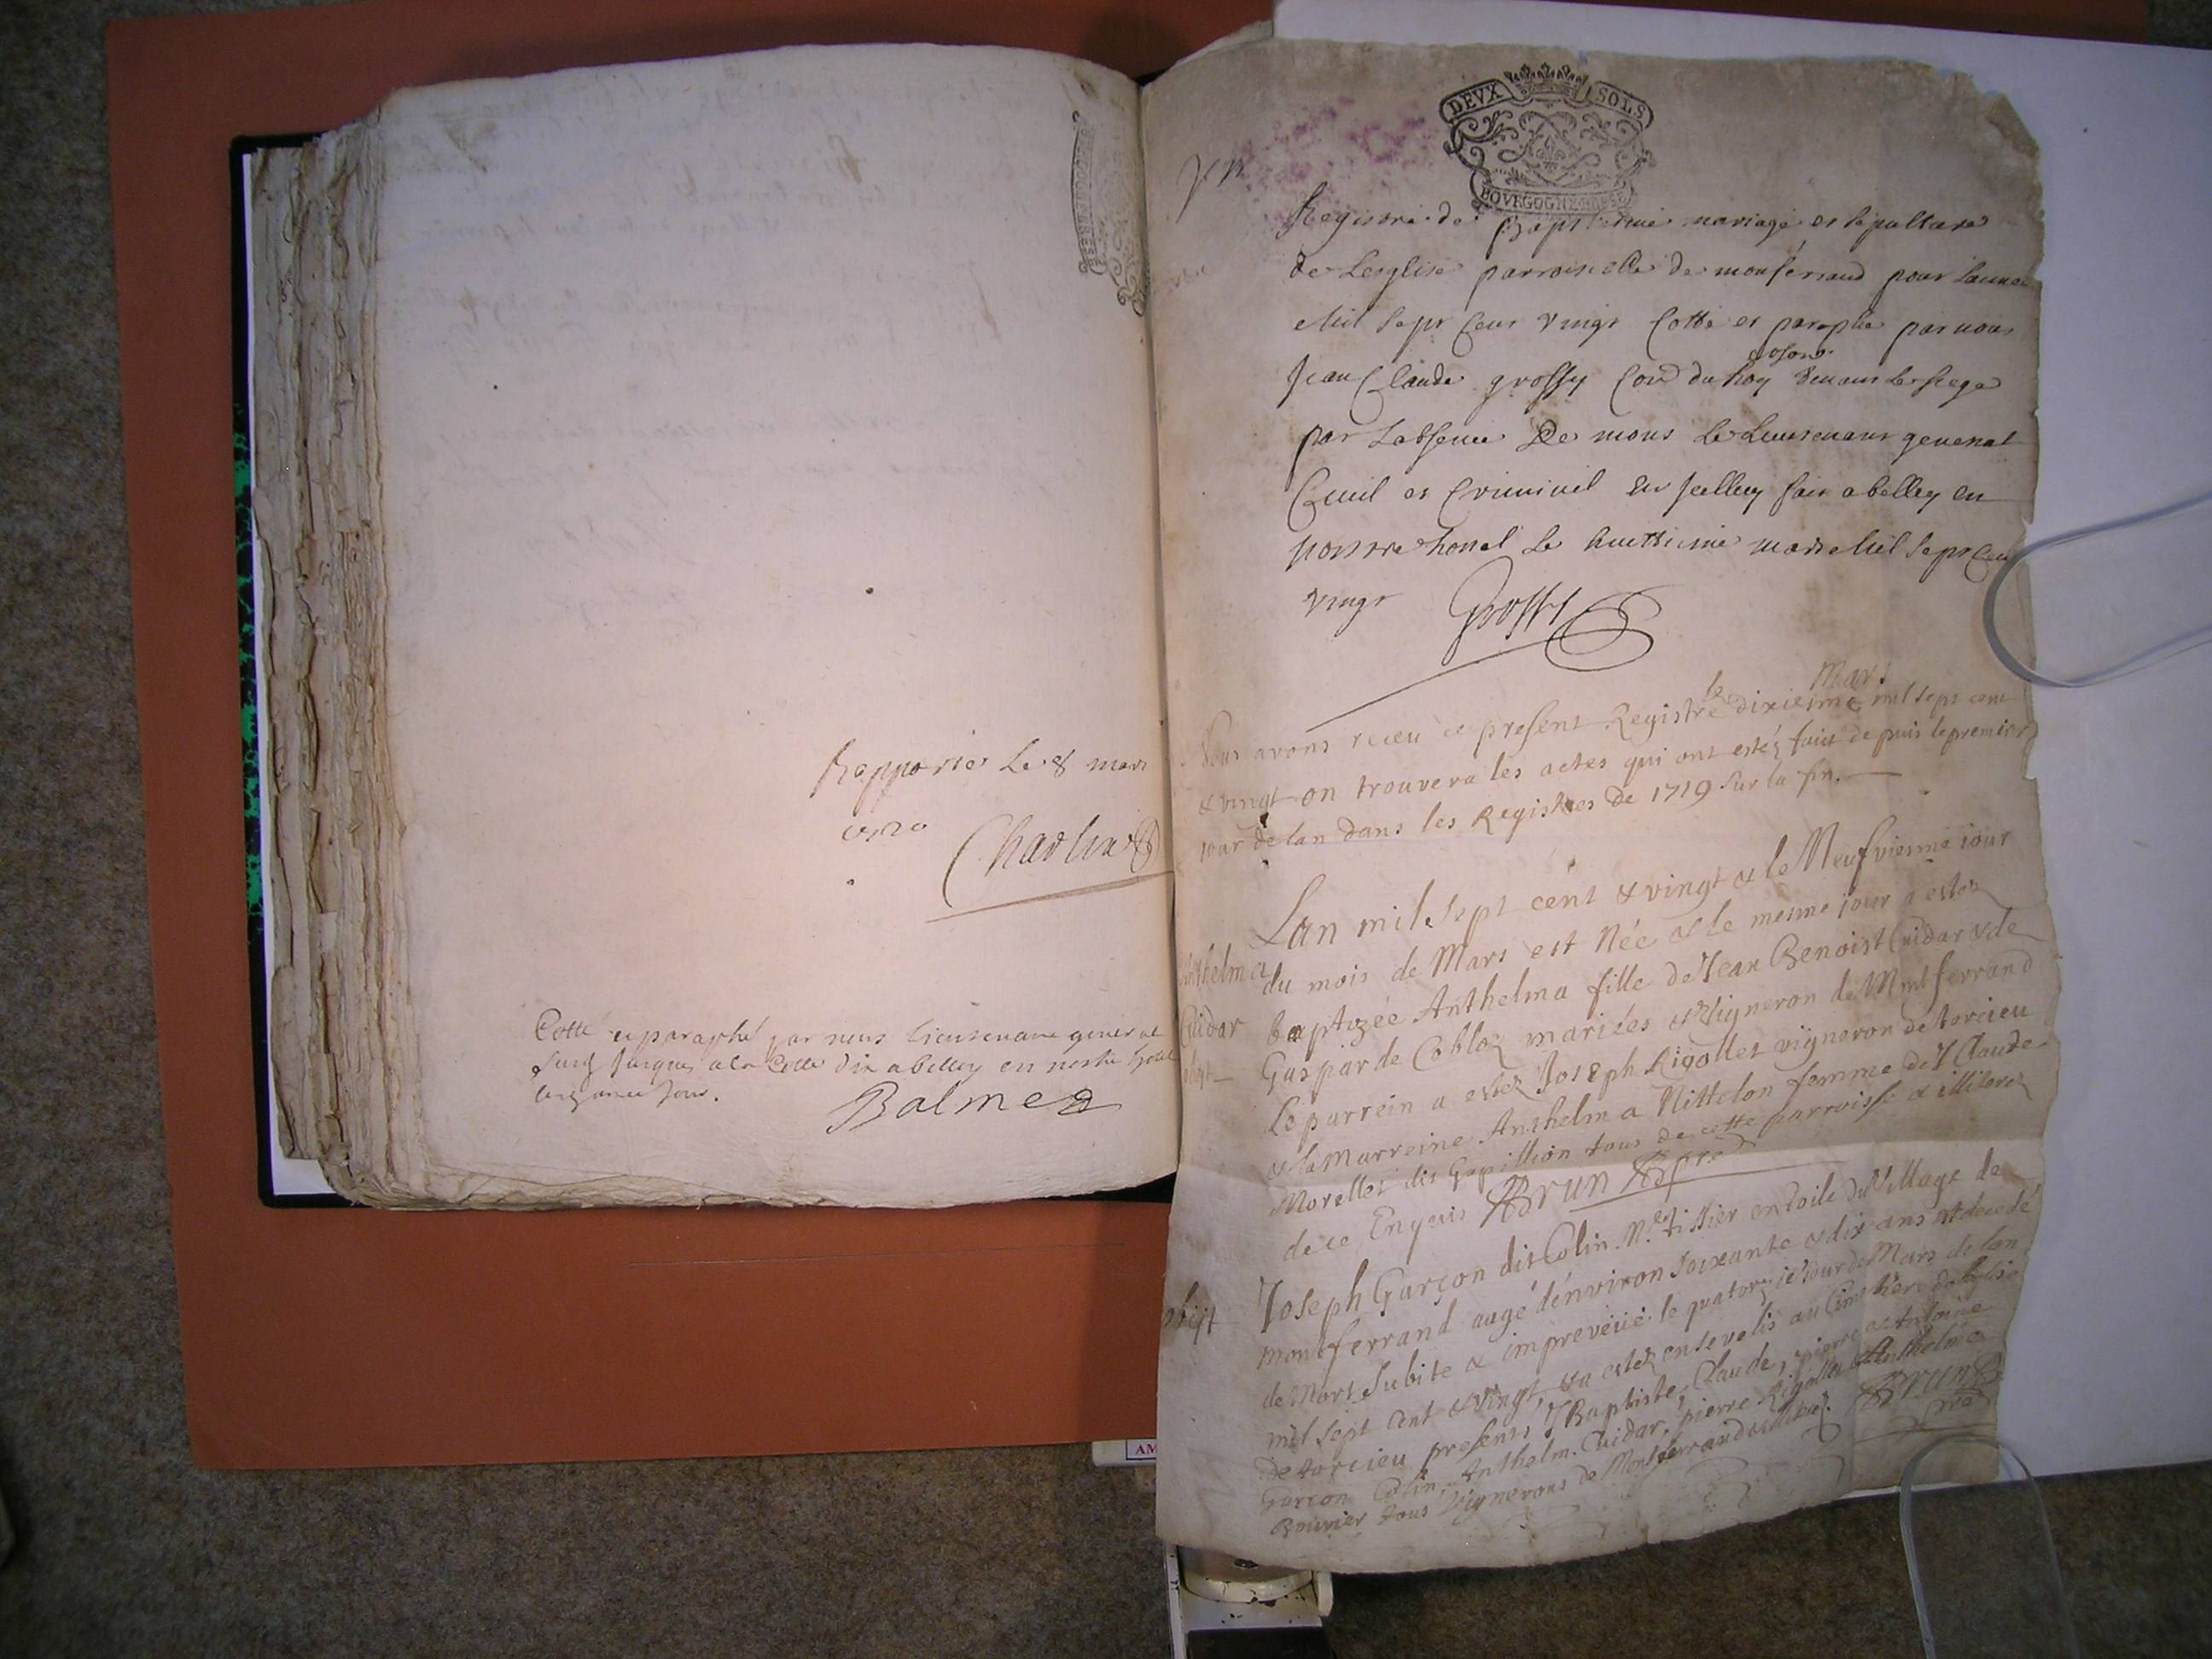 Rapporté Le 8 mars
1720
Charlin
Cotté et paraphé par nous Lieutenant general
jusques a la Cotte dix a belley en nostre hotel
Balme
DEVX SOLS
BOVRGOGNE BRESSE
Registre de Baptesme mariage et sepulture
de Leglise parroisielle de monferrand pour Lannee
Mil sept Cent vingt Cotté et paraphé par nous
Jean Claude grossy Con.r du Roy
par Labsence De mons Le Lieutenant general
Civil et Criminel fait a belley en
nostre hotel Le huittieme mars Mil sept Cent
vingt Grossy
Nous avons receu ce present Registre le dixiesme Mars mil sept cent
& vingt on trouvera les actes qui ont estéz faict depuis le premier
iour de lan dans les Registres de 1719 sur la fin.
Anthelma
Cuidar
Lan mil sept cent & vingt & le Neufviesme iour
du mois de Mars est Née & le mesme iour a estez
baptizée Anthelma fille de Jean Benoist Cuidar & de
Gasparde Cobloz mariées & Vigneron de Montferrand
Le parrein a estez Joseph Rigollet vigneron de torcieu
& la Marreine Anthelma Nittelon femme de J Claude
Morellet dit Gopillion tous de cette parroisse & illiterez
de ce Enquis Brun Ptre
obiit
Joseph Garçon dit Colin M.e tissier en toile du Village de
montferrand augé dénviron soixante & dix ans est decedé
de Mort Subite & impreveüe le quatorzie Jour de Mars de lan
mil sept cent & vingt, & a estez ensevelis au Cimetiere de leglise
de torcieu presents J Baptiste, Claude, pierre & Antoine
Garçon Colin, Anthelm Cuidar, pierre Rigollet & Anthelme
Bouvier tous Vignerons de Montferrand & illiterez. Brun
Ptre